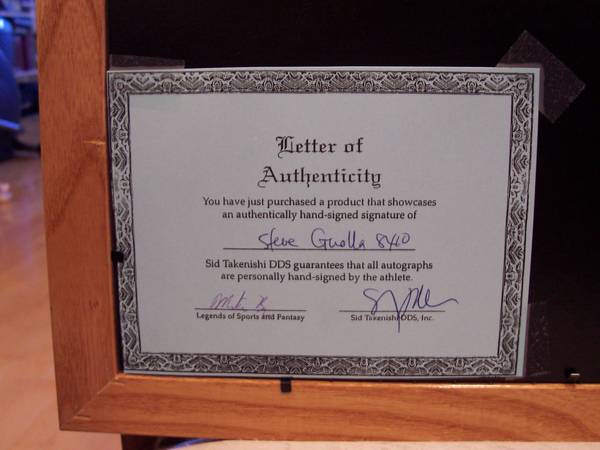 Letter of
Authenticity
You have just purchased a product that showcases
an authentically hand-signed signature of
Steve Guolla 8x10
Sid Takenishi DDS guarantees that all autographs
are personally hand-signed by the athlete.
Legends of Sports and Fantasy
Sid Takenishi DDS, Inc.